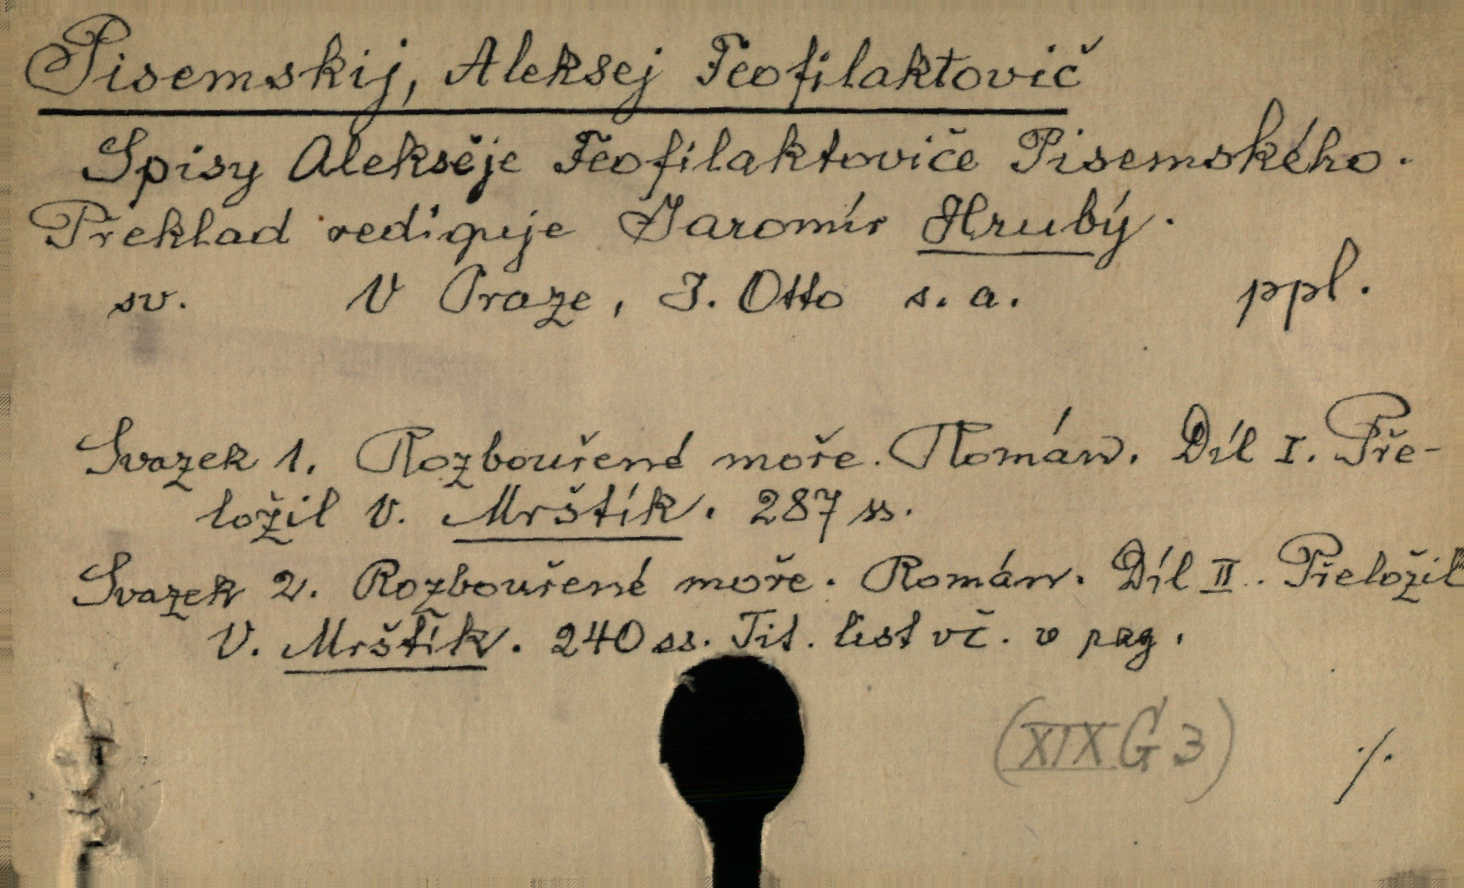 Pisemskij, Aleksej Feofilaktovič
Spisy Aleksěje Feofilaktoviče Pisemského.
Překlad rediguje Jaromír Hrubý.
sv. V Praze, J. Otto s. a. ppl.
Svazek 1. Rozbouřené moře. Román. Díl I. Pře-
ložil V. Mrštík. 287 ss.
Svazek 2. Rozbouřené moře. Román. Díl II. Přeložil
V. Mrštík. 240 ss. Tit. list vč. v pag.
(XIX G 3) ./.